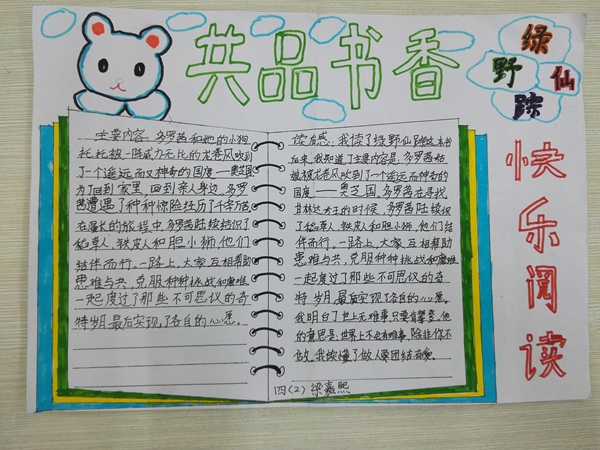 共品书香
绿
野
仙
踪
快乐阅读
主要内容:多罗茜和她的小狗
托托被一阵威力无比的龙卷风吹到
了一个遥远而又神奇的国度——奥芝国
为了回到家里,回到亲人身边,多罗
茜遭遇了种种惊险经历了千辛万苦
在漫长的旅程中,多罗茜陆续结识了
稻草人、铁皮人和胆小狮,他们
结伴而行。一路上,大家互相帮助
患难与共,克服种种挑战和磨难
一起度过了那些不可思议的奇
特岁月,最后实现了各自的心愿。
读后感:我读了绿野仙踪这本书
后来,我知道了主要内容是:多罗茜姑
娘被龙卷风吹到了一个遥远而神奇的
国度——奥芝国,多罗茜在寻找
其林达女王的时候,多罗茜陆续
识了稻草人、铁皮人和胆小狮,他们
结伴而行。一路上,大家互相帮助
患难与共,克服种种挑战和磨难
一起度过了那些不可思议的奇
特岁月,最后实现了各自的心愿。
我明白了世上无难事,只要肯攀登。他
的意思是:世界上不会有难事,除非你不
做。我读懂了做人要团结友爱。
四(2)梁嘉熙